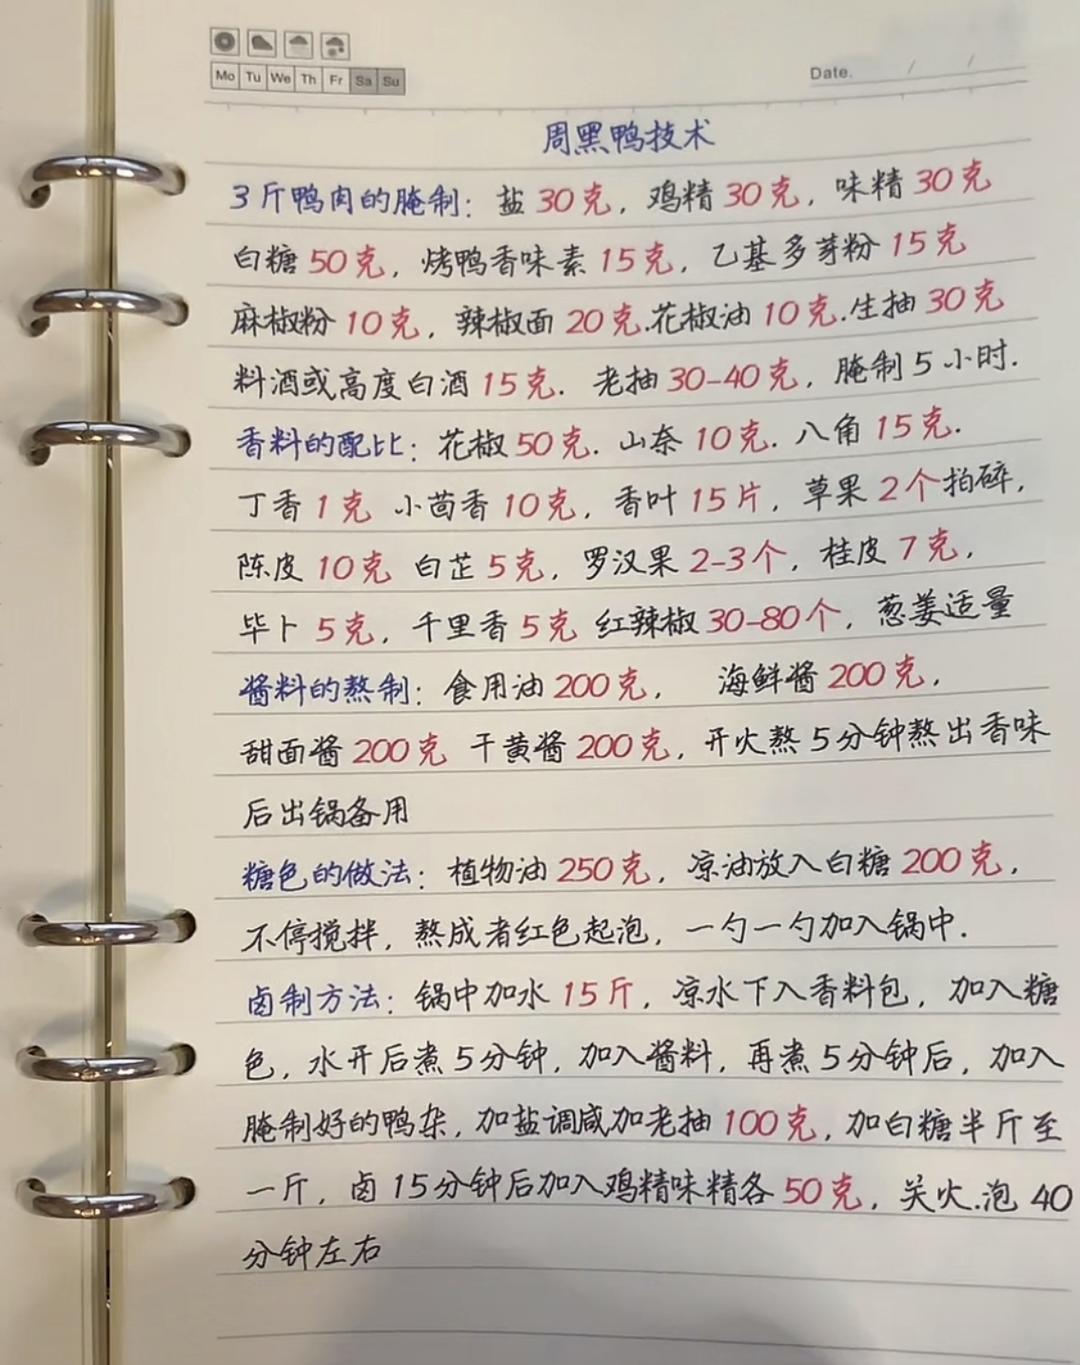 Mo Tu We Th Fr Sa Su
Date. / /
周黑鸭技术
3斤鸭肉的腌制：盐30克，鸡精30克，味精30克
白糖50克，烤鸭香味素15克，乙基多芽粉15克
麻椒粉10克，辣椒面20克.花椒油10克.生抽30克
料酒或高度白酒15克. 老抽30-40克，腌制5小时.
香料的配比：花椒50克. 山奈10克. 八角15克.
丁香1克 小茴香10克，香叶15片，草果2个拍碎，
陈皮10克 白芷5克，罗汉果2-3个，桂皮7克，
毕卜5克，千里香5克 红辣椒30-80个，葱姜适量
酱料的熬制：食用油200克， 海鲜酱200克，
甜面酱200克 干黄酱200克，开火熬5分钟熬出香味
后出锅备用
糖色的做法：植物油250克，凉油放入白糖200克，
不停搅拌，熬成者红色起泡，一勺一勺加入锅中.
卤制方法：锅中加水15斤，凉水下入香料包，加入糖
色，水开后煮5分钟，加入酱料，再煮5分钟后，加入
腌制好的鸭杂，加盐调咸加老抽100克，加白糖半斤至
一斤，卤15分钟后加入鸡精味精各50克，关火.泡40
分钟左右